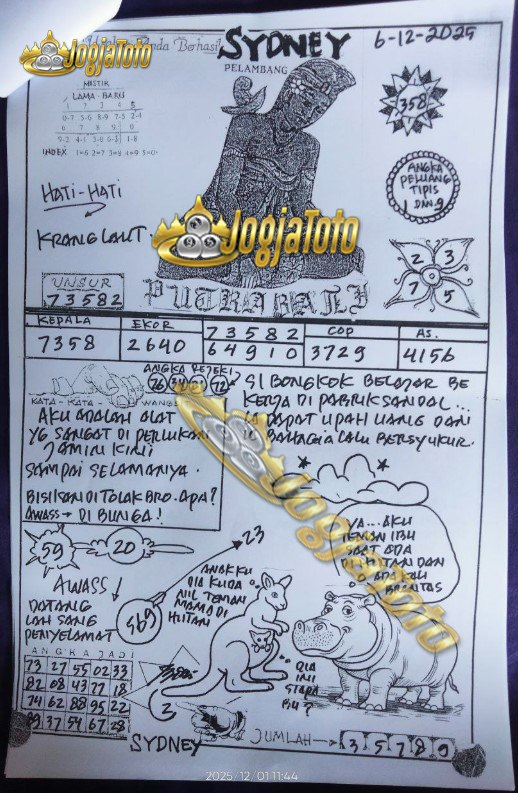 JogjaToto
SYDNEY
6-12-2025
PELAMBANG
MISTIK
LAMA - BARU
0-7 5-6 8-9 7-5 2-4
INDEX 1=6 2=7 3=8 4=9 5=0
358
ANGKA
PELUANG
TIPIS
1 DAN 9
HATI-HATI
KRANG LAUT
JogjaToto
2 3
0
7 5
UNSUR
73582
PUTRA BALI
KEPALA
7358
EKOR
2640
73582
64910
COP
3729
AS.
4156
ANGKA REJEKI
76 72
KATA - KATA - WANGS
SI BONGKOK BELAJAR BE
KERJA DI PABRIK SANDAL...
DAPAT UPAH UANG DAN
BAHAGIA LALU BERSYUKUR.
AKU ADALAH ALAT
YG SANGAT DI PERLUKAN
JAMIN KINI
SAMPAI SELAMANYA.
BISIKAN DI TOLAK BRO. APA?
AWASS → DI BUNGA!
JogjaToto
YA... AKU
TEMAN IBU
SAAT ADA
DI HUTAN DAN
59
20
23
AWASS
DATANG
LAH SANG
PENYELAMAT
569
ANAKKU
DIA KUDA
NIL TEMAN
MAMA DI
HUTAN
DIA
INI
SIAPA
BU?
ANGKA JADI
73 27 55 02 33
82 08 43 77 18
74 62 88 95 22
89 37 54 67 28
2
SYDNEY
JUMLAH → 3 5 7 8 9
2025/12/01 11:44